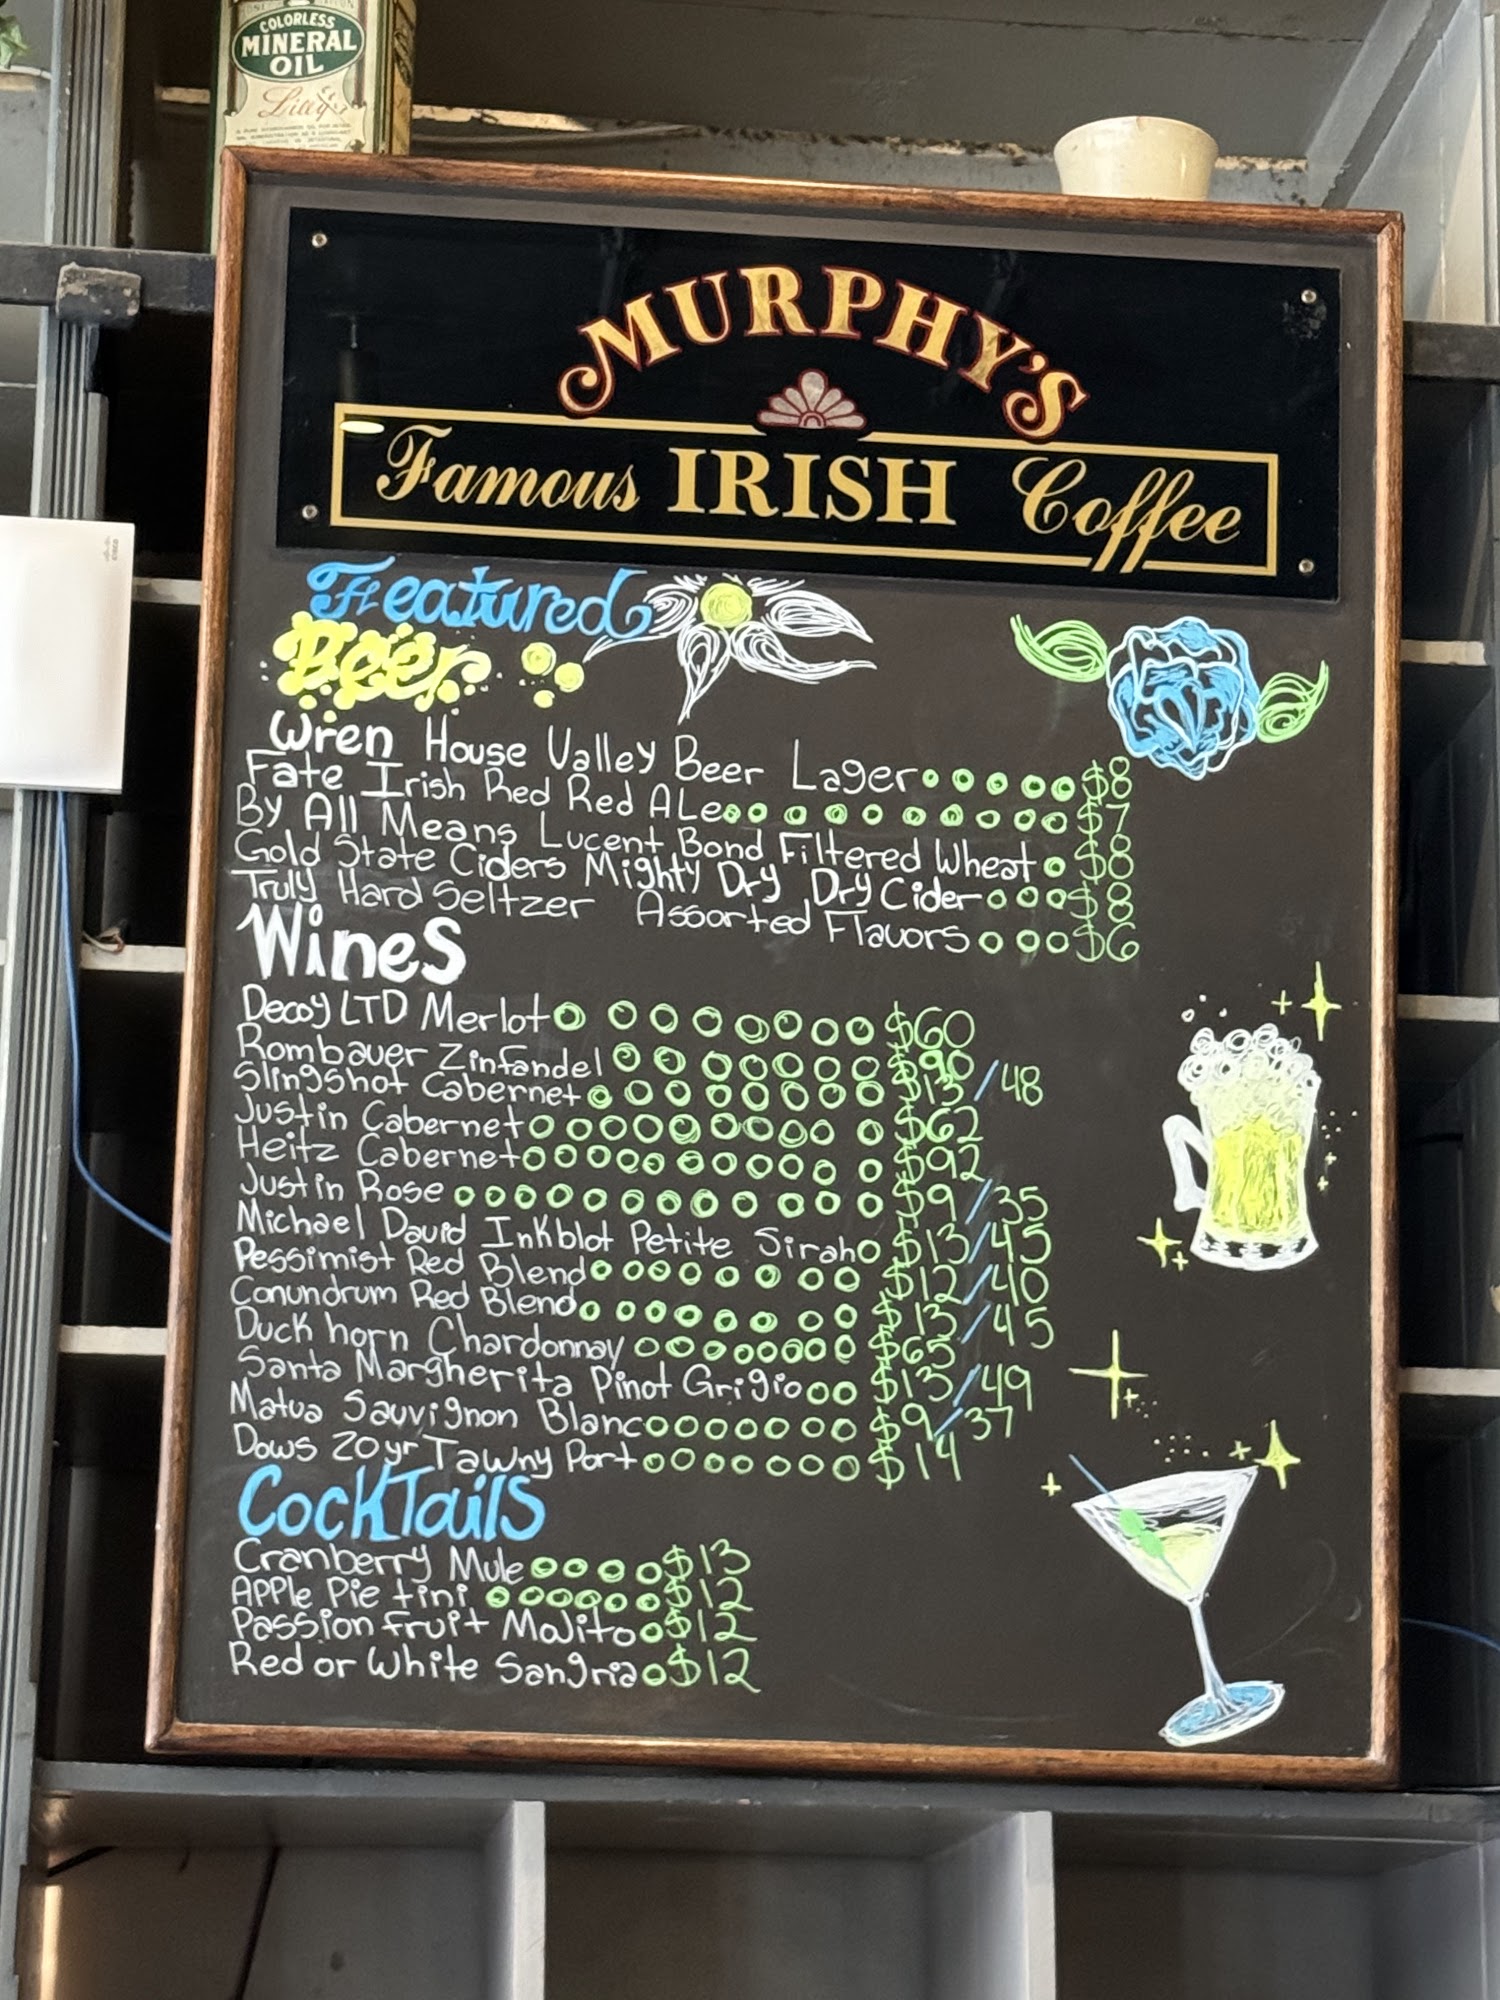 COLORLESS
MINERAL
OIL
Lilly
MURPHY'S
Famous IRISH Coffee
Featured
Beer
Wren House Valley Beer Lager $8
Fate Irish Red Red Ale $7
By All Means Lucent Bond Filtered Wheat $8
Gold State Ciders Mighty Dry Dry Cider $8
Truly Hard Seltzer Assorted Flavors $6
Wines
Decoy LTD Merlot $60
Rombauer Zinfandel $90
Slingshot Cabernet $13/48
Justin Cabernet $62
Heitz Cabernet $92
Justin Rose $9/35
Michael David Inkblot Petite Sirah $13/45
Pessimist Red Blend $12/40
Conundrum Red Blend $13/45
Duck horn Chardonnay $65
Santa Margherita Pinot Grigio $13/49
Matua Sauvignon Blanc $9/37
Dows 20yr Tawny Port $14
CockTails
Cranberry Mule $13
Apple Pie tini $12
Passion fruit Mojito $12
Red or White Sangria $12